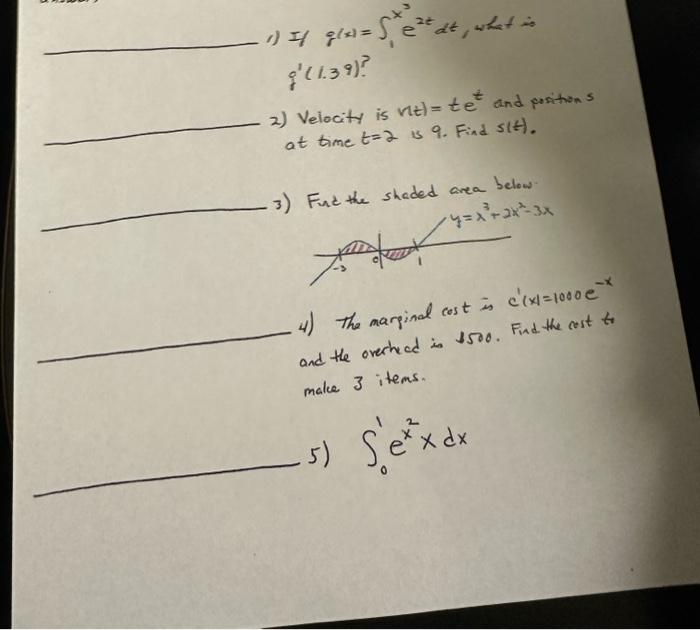 1) If g(x) = ∫₁^x³ e^2t dt, what is
g'(1.39)?
2) Velocity is v(t) = te^t and position s
at time t=2 is 9. Find s(t).
3) Find the shaded area below.
y = x³ + 2x² - 3x
-3 0 1
4) The marginal cost is c'(x) = 1000e^-x
and the overhead is $500. Find the cost to
make 3 items.
5) ∫₀¹ e^x² x dx